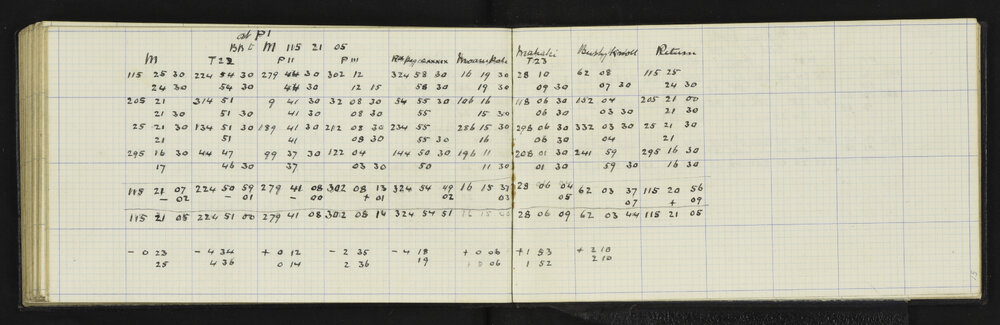 at P1
BB to M 115 21 05
M T22 P11 P111 Moanuiroki Makaki T23 Bushy Knoll Return
115 25 30 224 54 30 279 44 30 302 12 324 58 30 16 19 30 28 10 62 08 115 25
24 30 54 30 44 30 12 15 58 30 19 30 09 30 07 30 24 30
205 21 314 51 9 41 30 32 08 30 54 55 30 106 16 118 06 30 152 04 205 21 00
21 30 51 30 41 30 08 30 55 15 30 06 30 03 30 21 30
25 21 30 134 51 30 189 41 30 212 08 30 234 55 286 15 30 298 06 30 332 03 30 25 21 30
21 51 41 08 30 55 30 16 06 30 04 21
295 16 30 44 47 99 37 30 122 04 144 50 30 196 11 208 01 30 241 59 295 16 30
17 46 30 37 03 30 50 11 30 01 30 59 30 16 30
115 21 07 224 50 59 279 41 08 302 08 13 324 54 49 16 15 37 28 06 04 62 03 37 115 20 56
- 02 - 01 - 00 + 01 02 03 05 07 + 09
115 21 05 224 51 00 279 41 08 302 08 14 324 54 51 16 15 40 28 06 09 62 03 44 115 21 05
- 0 23 - 4 34 + 0 12 - 2 35 - 4 18 + 0 06 + 1 53 + 2 10
25 4 36 0 14 2 36 19 + 0 06 1 52 2 10
15